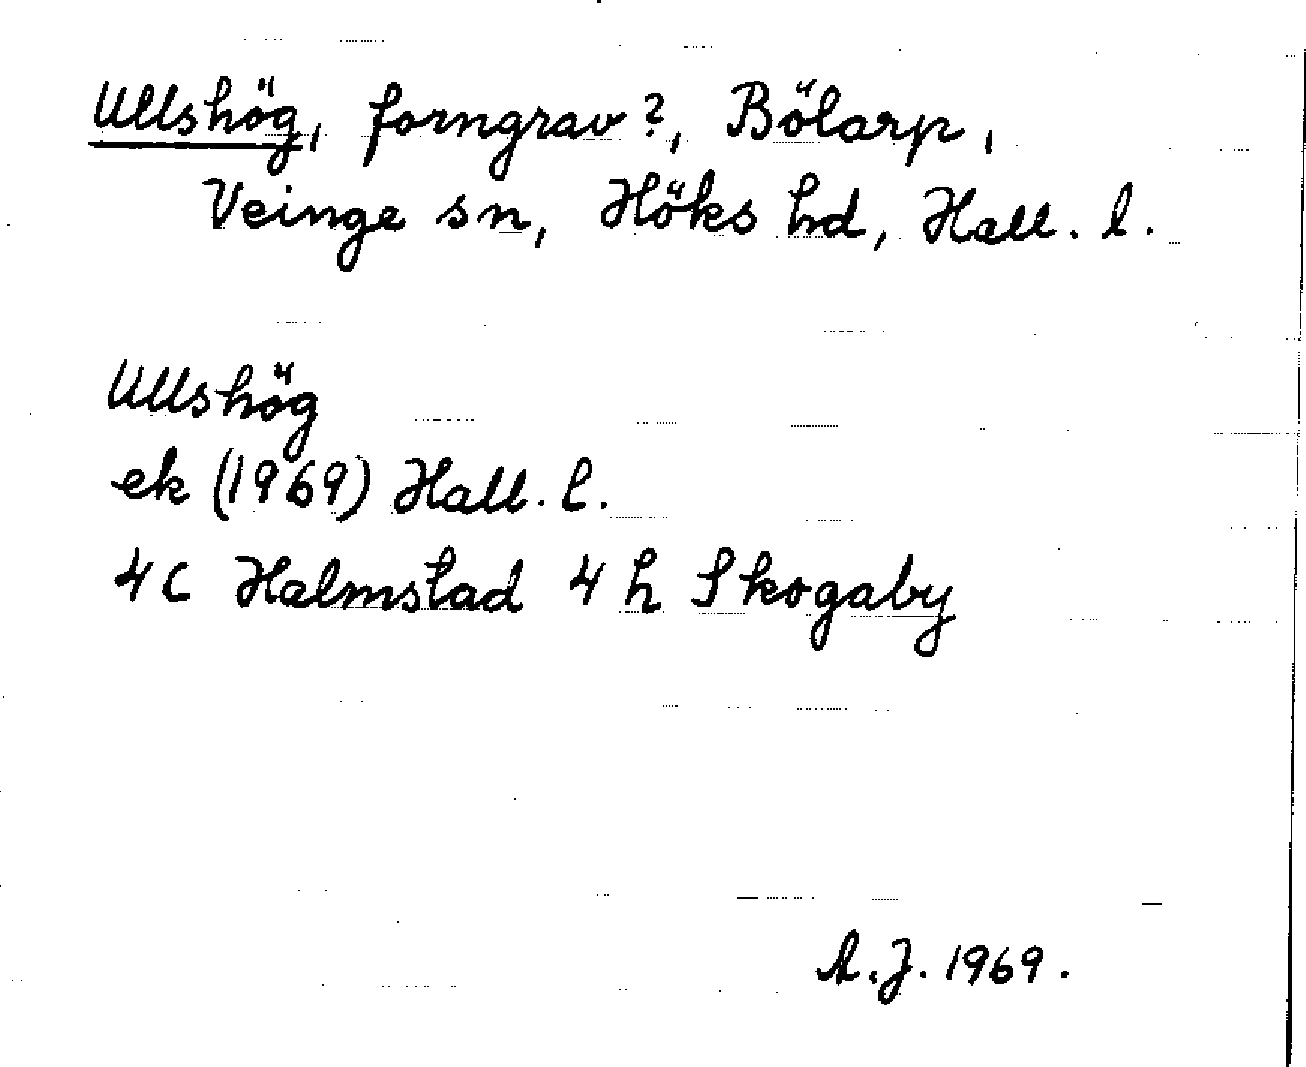 Ullshög, forngrav?, Bölarp,
Veinge sn, Höks hd, Hall. l.
Ullshög
ek (1969) Hall. l.
4c Halmstad 4 h Skogaby
A.J. 1969.